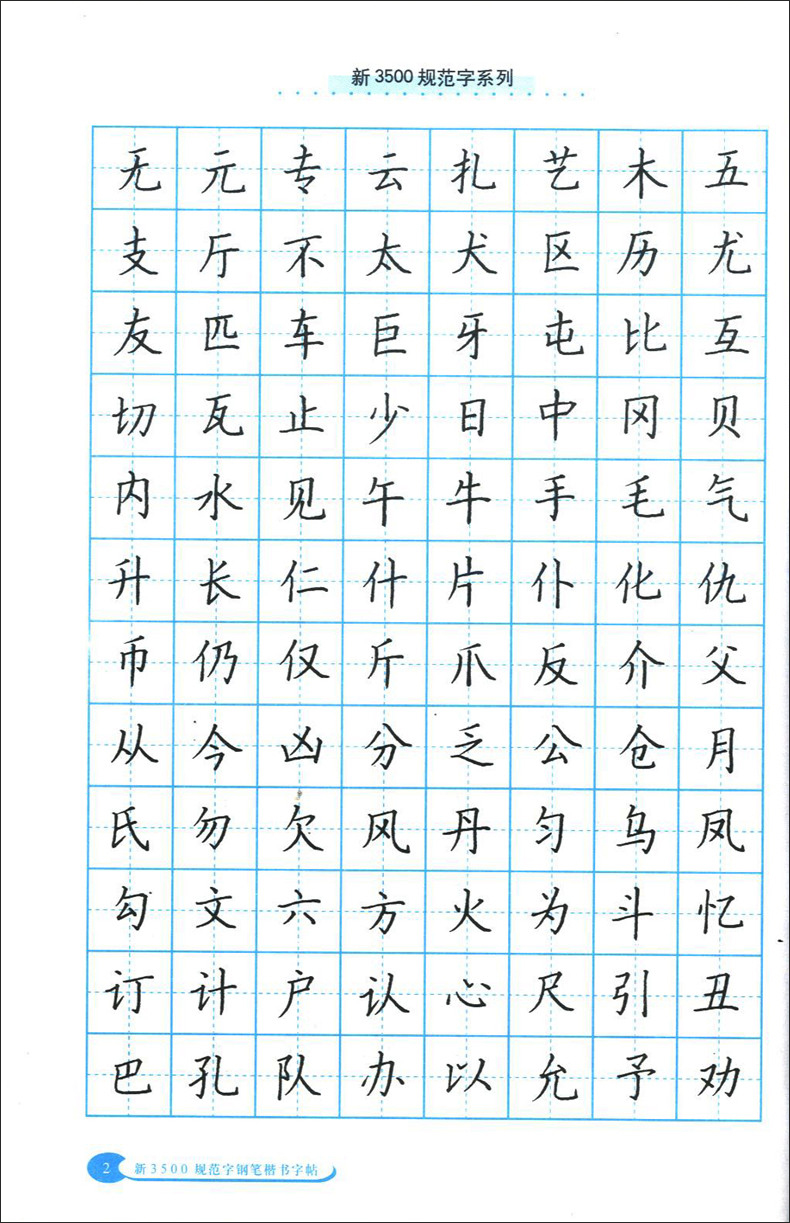 新3500规范字系列
无元专云扎艺木五
支厅不太犬区历尤
友匹车巨牙屯比互
切瓦止少日中冈贝
内水见午牛手毛气
升长仁什片仆化仇
币仍仅斤爪反介父
从今凶分乏公仓月
氏勿欠风丹匀乌凤
勾文六方火为斗忆
订计户认心尺引丑
巴孔队办以允予劝
2 新3500规范字钢笔楷书字帖